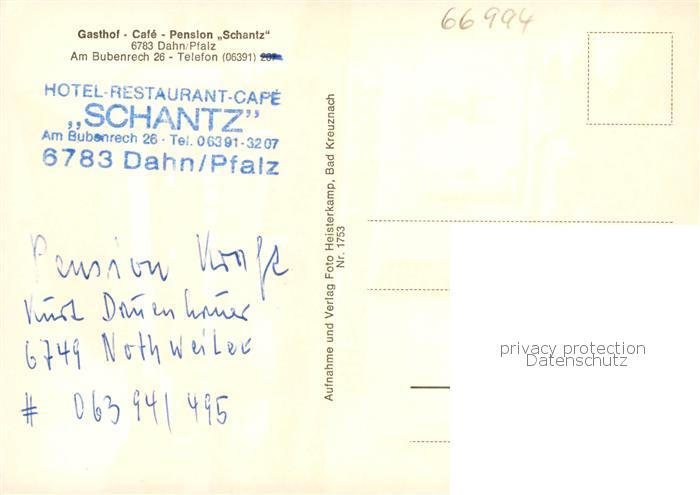 Gasthof - Café - Pension „Schantz"
6783 Dahn/Pfalz
Am Bubenrech 26 - Telefon (06391) 207
HOTEL-RESTAURANT-CAFÉ
„SCHANTZ"
Am Bubenrech 26 · Tel. 06391-3207
6783 Dahn/Pfalz
Pension Kraft
Kurt Dauenhauer
6749 Nothweiler
# 06394/495
Aufnahme und Verlag Foto Heisterkamp, Bad Kreuznach
Nr. 1753
66994
privacy protection
Datenschutz